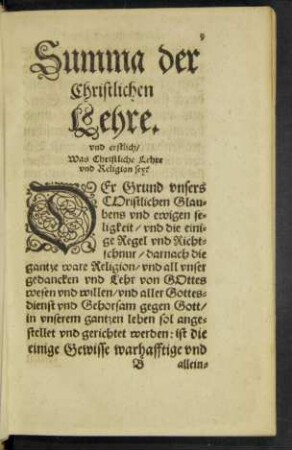 9
Summa der
Christlichen
Lehre.
vnd erstlich/
Was Christliche Lehre
vnd Religion sey?
DEr Grund vnsers
COristlichen Glau-
bens vnd ewigen se-
ligkeit/ vnd die eini-
ge Regel vnd Richt-
schnur/ darnach die
gantze ware Religion/ vnd all vnser
gedancken vnd Lehr von GOttes
wesen vnd willen/ vnd aller Gottes-
dienst vnd Gehorsam gegen Gott/
in vnserem gantzen leben sol ange-
stellet vnd gerichtet werden: ist die
einige Gewisse warhafftige vnd
B allein-